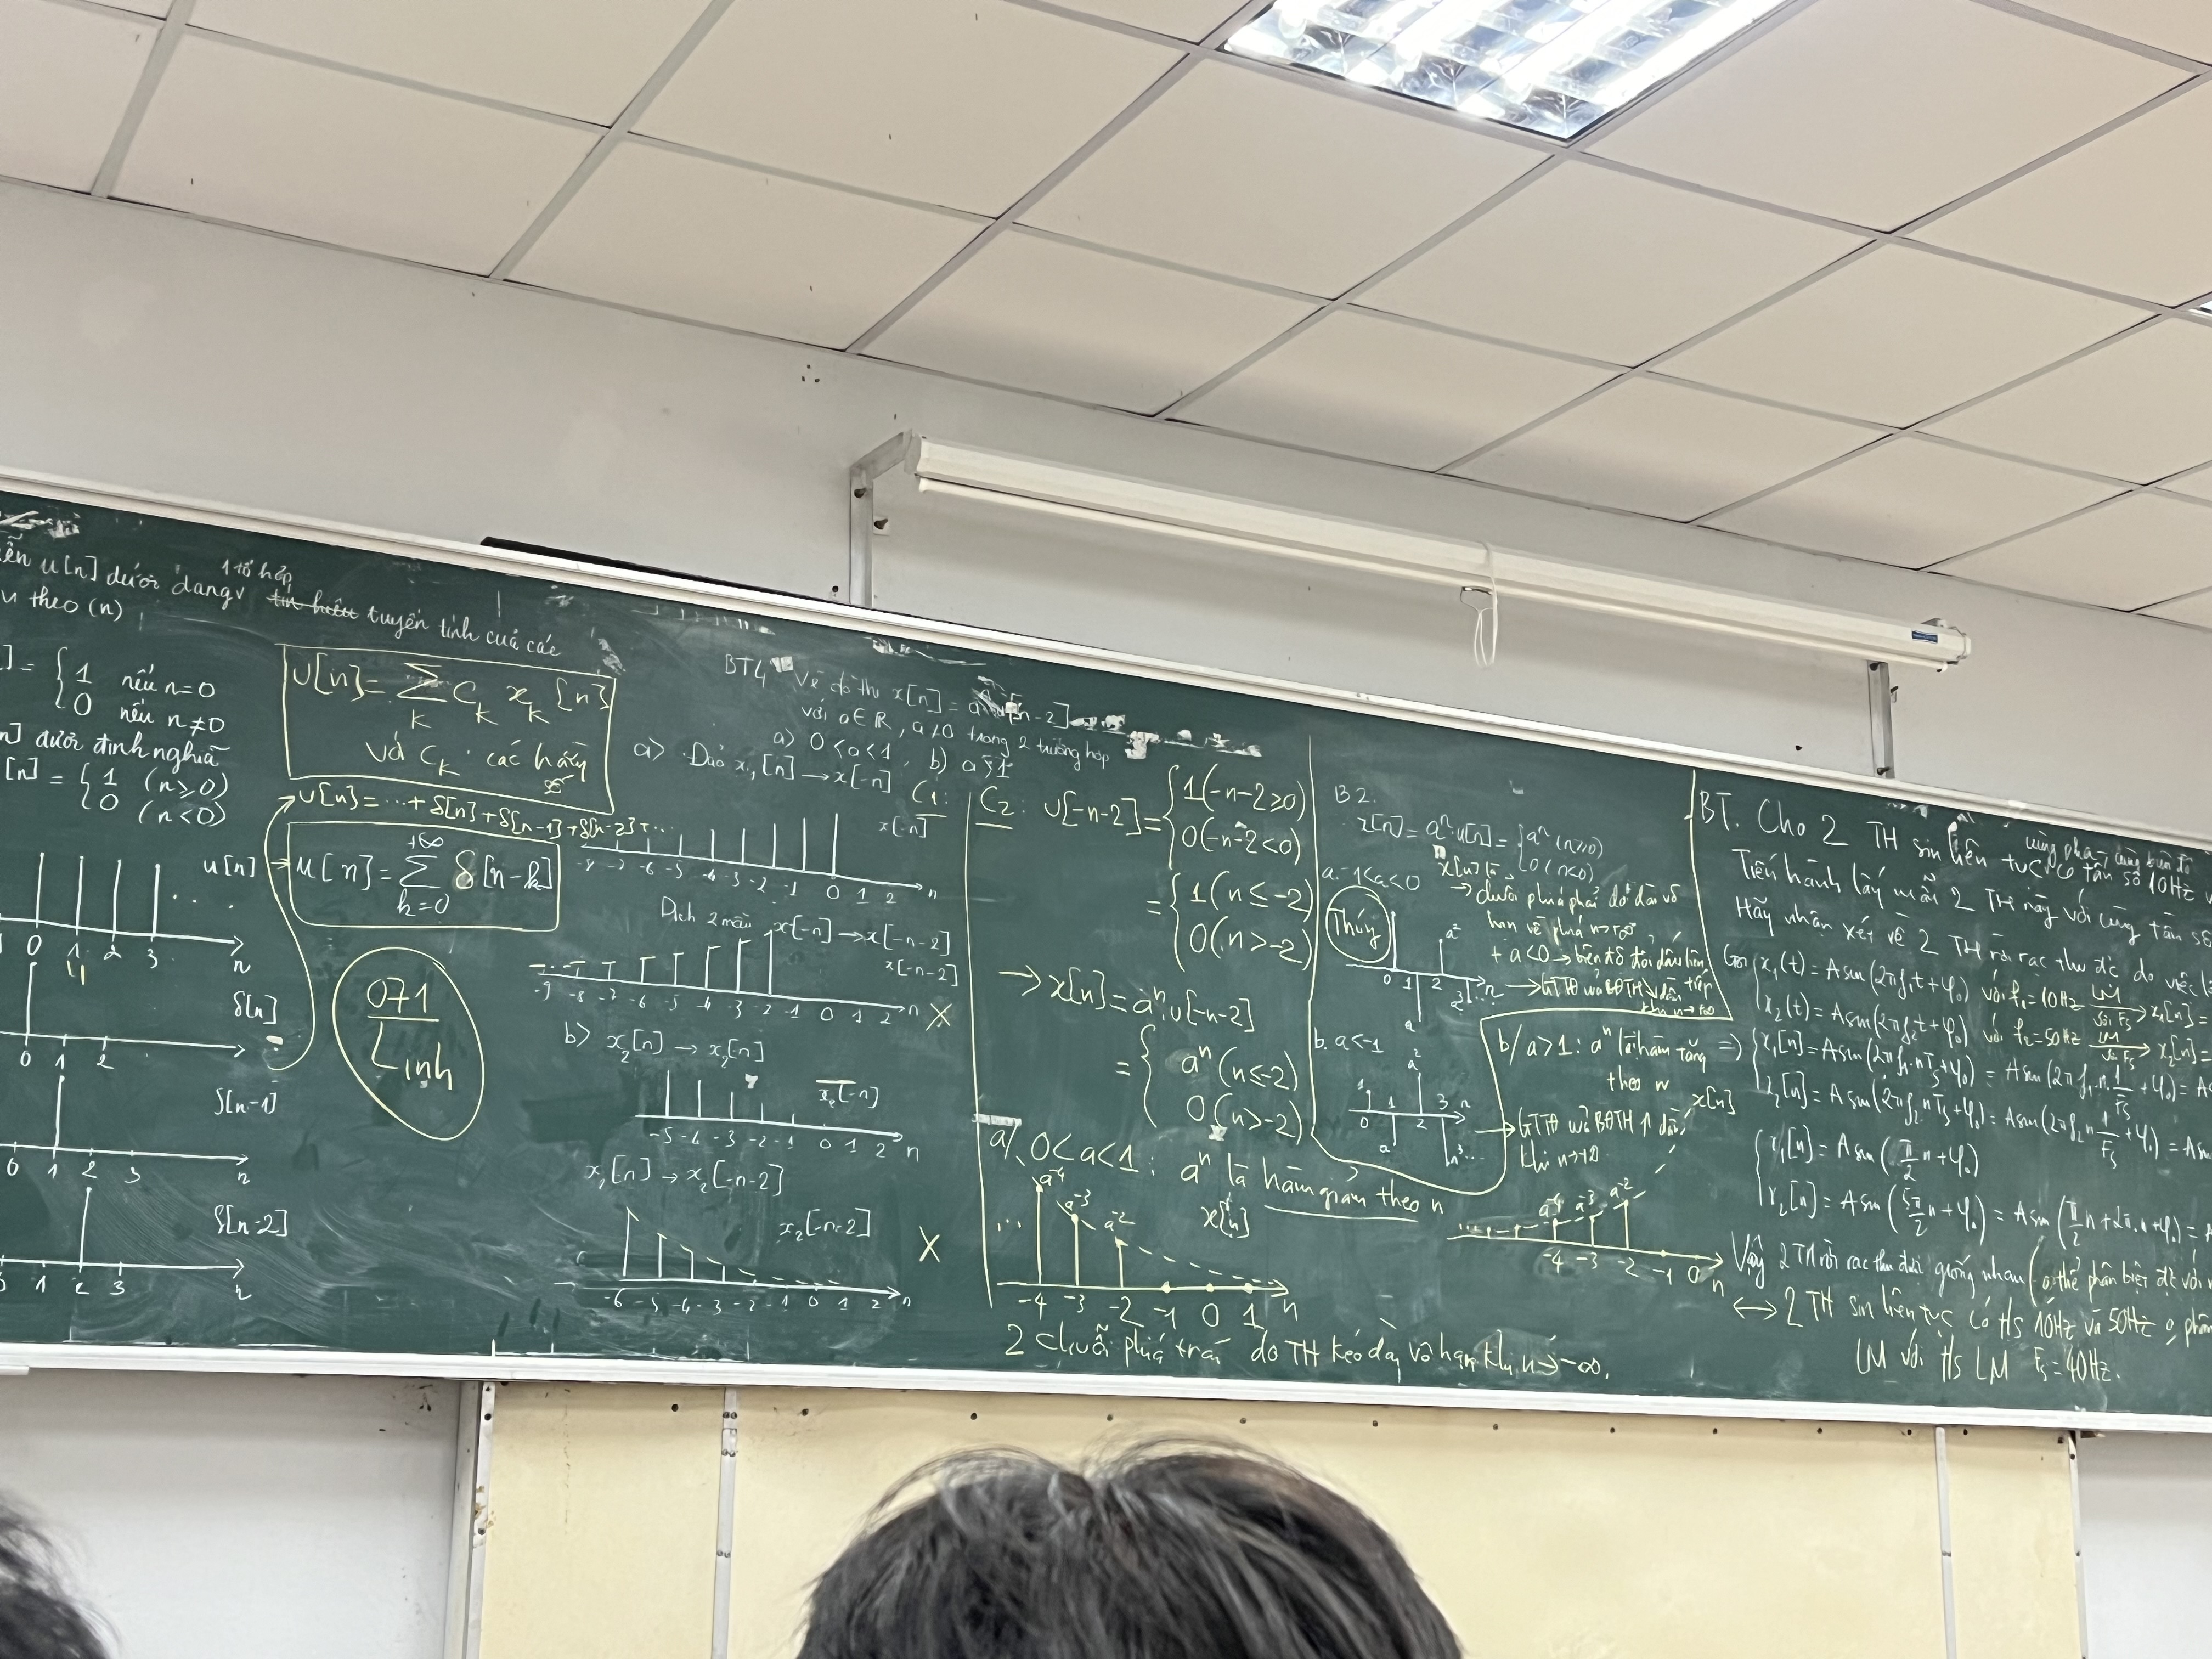 u[n] dưới dạng 1 tổ hợp tuyến tính của các
theo (n)
= { 1 nếu n=0
0 nếu n≠0
dưới định nghĩa
[n] = { 1 (n≥0)
0 (n<0)
U[n] = Σ C_k x_k [n]
k
với C_k các hằng số
u[n] = ...+ δ[n] + δ[n-1] + δ[n-2] + ...
u[n] = Σ δ[n-k]
+∞
k=0
u[n]
0 1 2 3 n
δ[n]
0 1 2
δ[n-1]
0 1 2 3 n
δ[n-2]
1 2 3 n
071
Linh
BT4 Vẽ đồ thị x[n] = a
với a∈R, a≠0 trong 2 trường hợp
a) 0<a<1, b) a>1
a) Đưa x₁[n] → x[-n]
C1:
x[-n]
-8 -7 -6 -5 -4 -3 -2 -1 0 1 2 n
Dịch 2 mẫu x[-n] → x[-n-2]
x[-n-2]
-9 -8 -7 -6 -5 -4 -3 -2 -1 0 1 2 n X
b) x₂[n] → x₂[-n]
x₂[-n]
-5 -4 -3 -2 -1 0 1 2 n
x₁[n] → x₂[-n-2]
x₂[-n-2]
X
-6 -5 -4 -3 -2 -1 0 1 2 n
C2: u[-n-2] = { 1 (-n-2≥0)
0 (-n-2<0)
= { 1 (n≤-2)
0 (n>-2)
→ x[n] = aⁿ.u[-n-2]
= { aⁿ (n≤-2)
0 (n>-2)
a/ 0<a<1: aⁿ là hàm giảm theo n
a⁻⁴ a⁻³ a⁻² x[n]
-4 -3 -2 -1 0 1 n
2 chuỗi phía trái do TH kéo dài vô hạn khi n→-∞.
B2.
x[n] = aⁿ.u[n] = { aⁿ (n≥0)
0 (n<0)
a. -1<a<0
Thúy
x[n] là
→ chuỗi phía phải do dài vô
hạn về phía n→+∞
+ a<0 → biên độ đổi dấu liên tiếp
1 a²
0 1 2 n
a a³
b. a<-1
a²
1 1 3 n
0 2
a
b/ a>1: aⁿ là hàm tăng
theo n
x[n]
→ GTTĐ của BĐTH ↑ dần
khi n→+∞
a⁻⁴ a⁻³ a⁻²
-4 -3 -2 -1 0 n
BT. Cho 2 TH sin liên tục có tần số 10Hz
cùng pha, cùng biên độ
Tiến hành lấy mẫu 2 TH này với cùng tần số
Hãy nhận xét về 2 TH rời rạc thu đc do việc
Gọi { x₁(t) = Asin(2πf₁t+φ₀) với f₁=10Hz LM với Fs → x₁[n] =
x₂(t) = Asin(2πf₂t+φ₀) với f₂=50Hz LM với Fs → x₂[n] =
⇒ { x₁[n] = Asin(2πf₁.nTs+φ₀) = Asin(2πf₁.n.1/Fs+φ₀) =
x₂[n] = Asin(2πf₂nTs+φ₀) = Asin(2πf₂n1/Fs+φ₀) =
{ x₁[n] = Asin(π/2 n+φ₀)
x₂[n] = Asin(5π/2 n+φ₀) = Asin(π/2 n+2πn+φ₀) =
Vậy 2 TH rời rạc thu được giống nhau (0 thể phân biệt đc với
⟷ 2 TH sin liên tục có t/s 10Hz và 50Hz 0 phân
LM với t/s LM Fs = 40Hz.